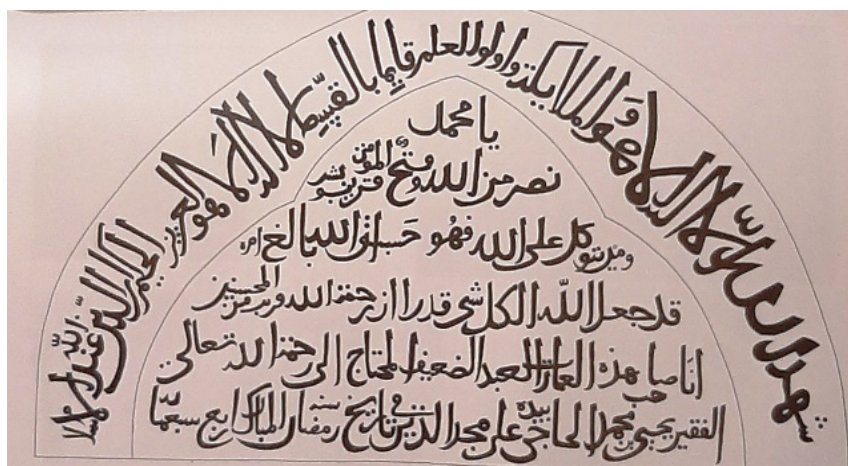 شهد الله انه لا اله الا هو والملائكة واولوا العلم قايما بالقسط لا اله الا هو العزيز الحكيم ان الدين عند الله الاسلام
يا محمد
نصر من الله وفتح قريب وبشر المؤمنين
ومن يتوكل على الله فهو حسبه ان الله بالغ امره
قد جعل الله الكل شى قدرا ان رحمة الله قريب من المحسنين
انا صاحب هذه العمارات العبد الضعيف المحتاج الى رحمة الله تعالى
الفقير يحيى بن محمد الحاجى بيده على مجد الدين فى تاريخ سنه رمضان المبارك اربع سبعما